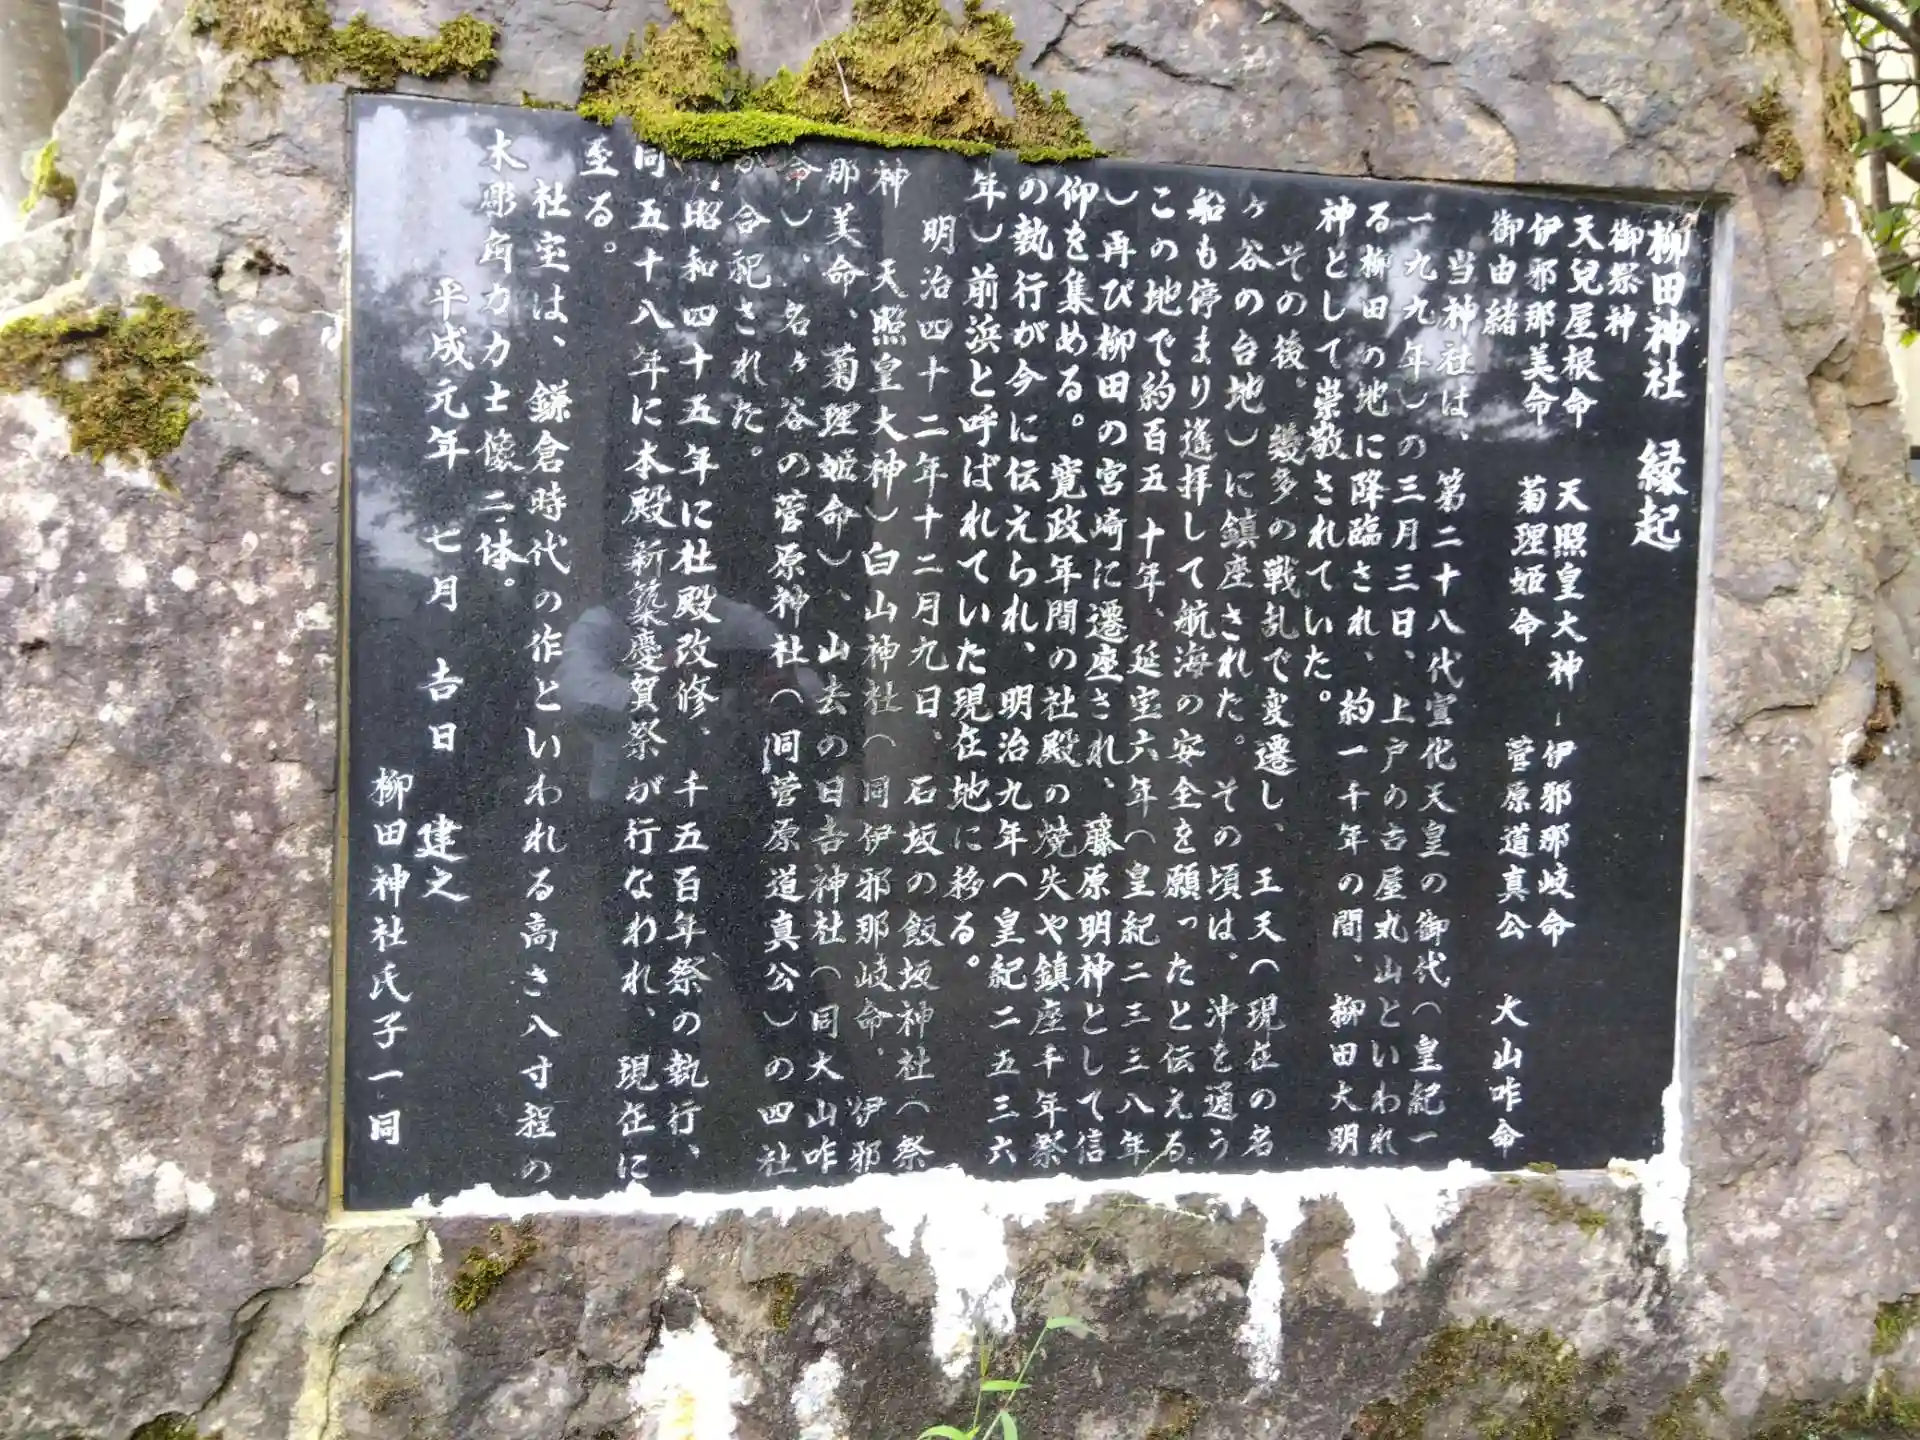 柳田神社 縁起
御祭神
天兒屋根命 天照皇大神 伊邪那岐命
伊邪那美命 菊理姫命 菅原道真公 大山咋命
御由緒
当神社は、第二十八代宣化天皇の御代(皇紀一
一九九年)の三月三日、上戸の古屋丸山といわれ
る柳田の地に降臨され、約一千年の間、柳田大明
神として崇敬されていた。
その後、幾多の戦乱で変遷し、王天(現在の名
ヶ谷の台地)に鎮座された。その頃は、沖を通う
船も停まり遙拝して航海の安全を願ったと伝える。
この地で約百五十年、延宝六年(皇紀二三三八年
)再び柳田の宮崎に遷座され、藤原明神として信
仰を集める。寛政年間の社殿の焼失や鎮座千年祭
の執行が今に伝えられ、明治九年(皇紀二五三六
年)前浜と呼ばれていた現在地に移る。
明治四十二年十二月九日、石坂の飯坂神社(祭
神 天照皇大神)白山神社(同伊邪那岐命、伊邪
那美命、菊理姫命)、山去の日吉神社(同大山咋
命)、名ヶ谷の菅原神社(同菅原道真公)の四社
が合祀された。
昭和四十五年に社殿改修、千五百年祭の執行、
同五十八年に本殿新築慶賀祭が行なわれ、現在に
至る。
社宝は、鎌倉時代の作といわれる高さ八寸程の
木彫角力力士像二体。
平成元年 七月 吉日 建之
柳田神社氏子一同